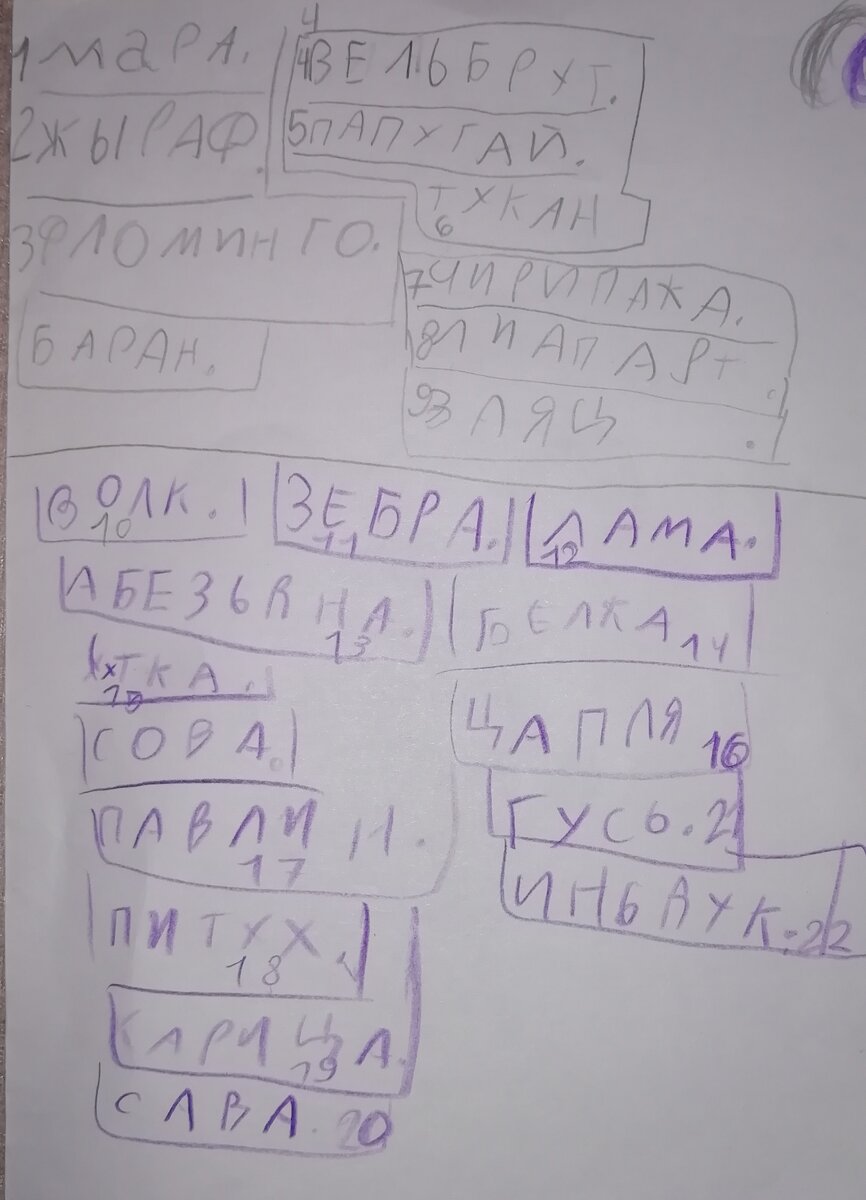 1МАРА.
2ЖЫРАФ.
3ФЛОМИНГО.
БАРАН.
4
4ВЕЛЬБРУТ.
5ПАПУГАЙ.
6 ТУКАН
7ЧИРИПАХА.
8ЛИАПАРТ.
9ЗЛЯЦ.
ВОЛК. 10
ЗЕБРА. 11
ЛАМА. 12
АБЕЗЬЯНА. 13
БЕЛКА 14
УТКА. 15
СОВА.
ЦАПЛЯ 16
ПАВЛИН. 17
ГУСЬ. 21
ПИТУХ. 18
ИНБАУК. 22
КАРИЦА. 19
САВА. 20